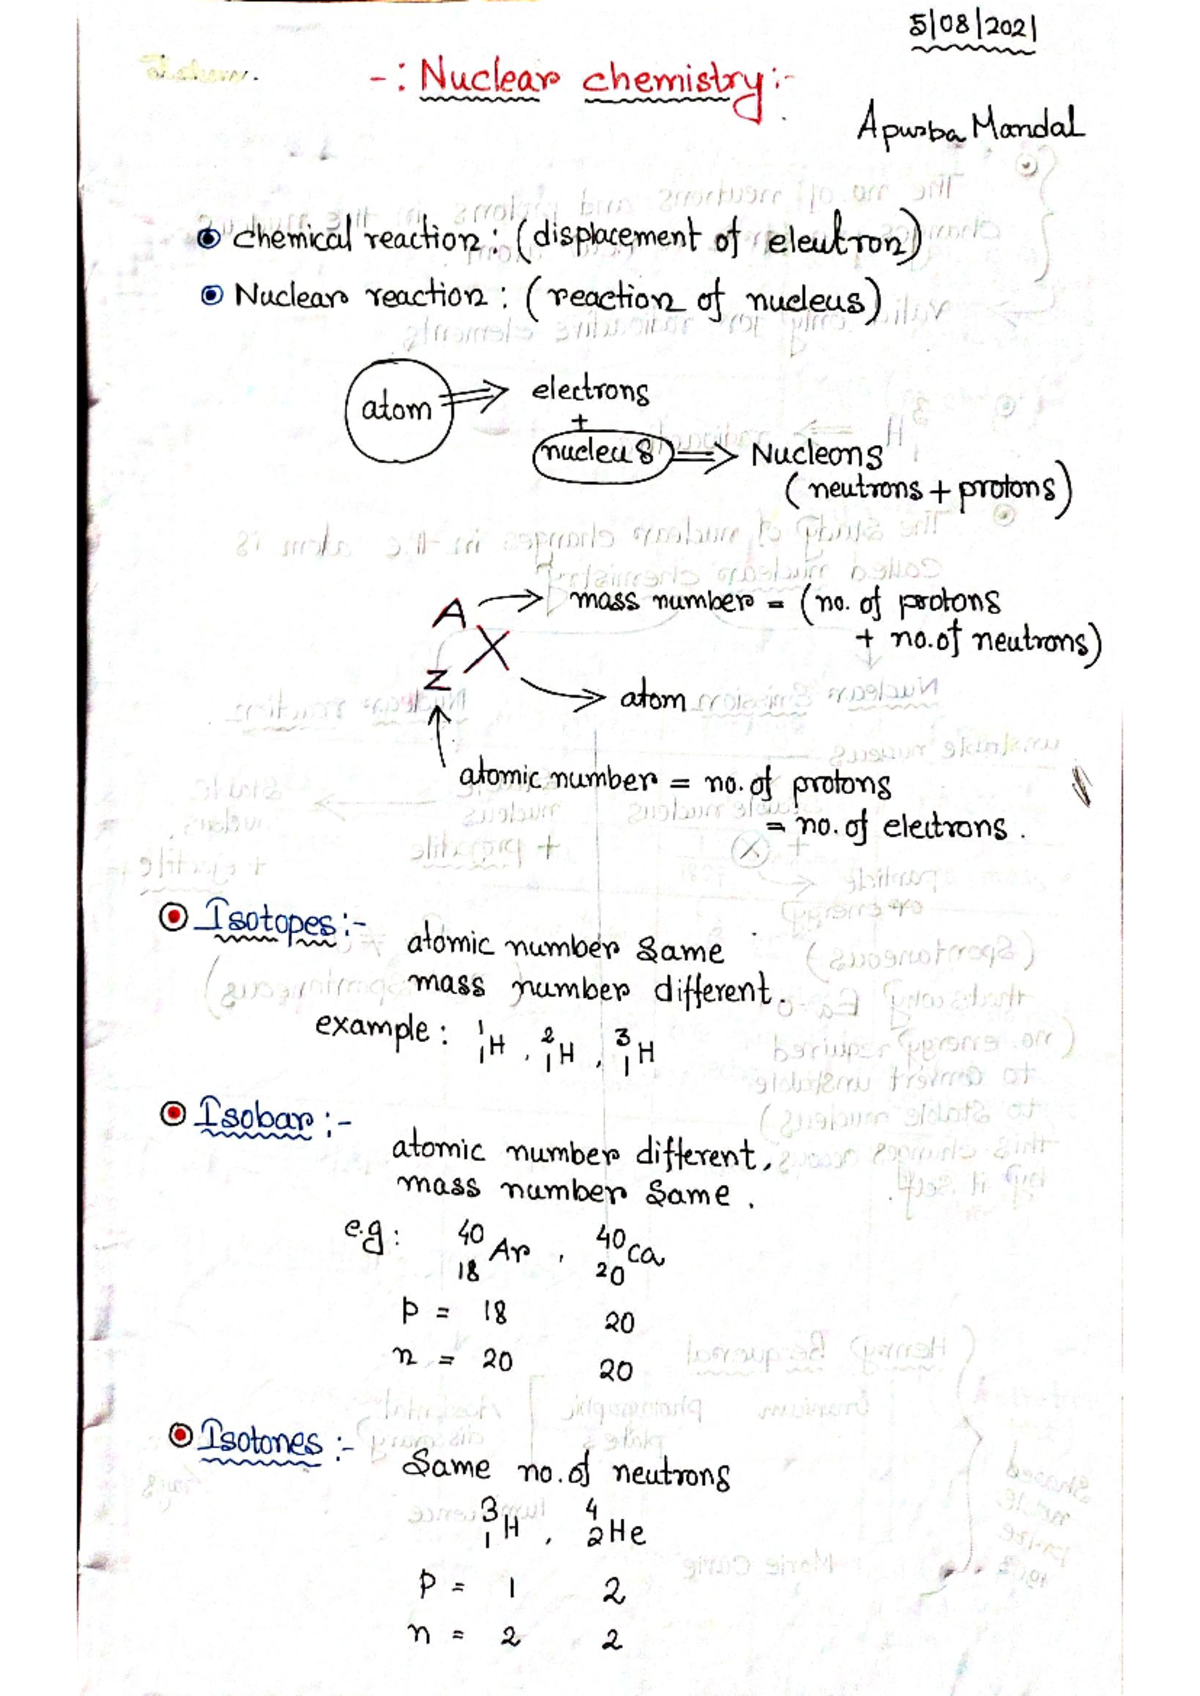 5/08/2021
-: Nuclear chemistry:-
Apurba Mandal
chemical reaction: (displacement of eleutron)
Nuclear reaction: (reaction of nucleus)
atom ⇒ electrons
+
nucleus ⇒ Nucleons
(neutrons + protons)
A → mass number = (no. of protons
+ no. of neutrons)
X
Z
→ atom
atomic number = no. of protons
= no. of electrons.
Isotopes:-
atomic number same
mass number different.
example: ¹₁H, ²₁H, ³₁H
Isobar:-
atomic number different,
mass number same.
e.g: ⁴⁰₁₈Ar, ⁴⁰₂₀Ca
p = 18 20
n = 20 20
Isotones:-
Same no. of neutrons
³₁H, ⁴₂He
p = 1 2
n = 2 2